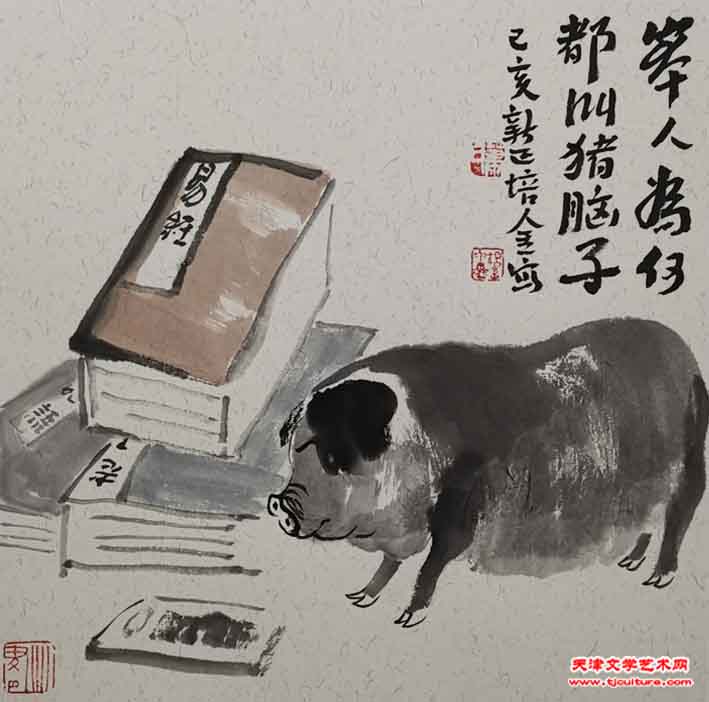 笨人為何
都叫猪脑子
己亥新正培全寫
易經
老
天津文学艺术网
www.tjculture.com